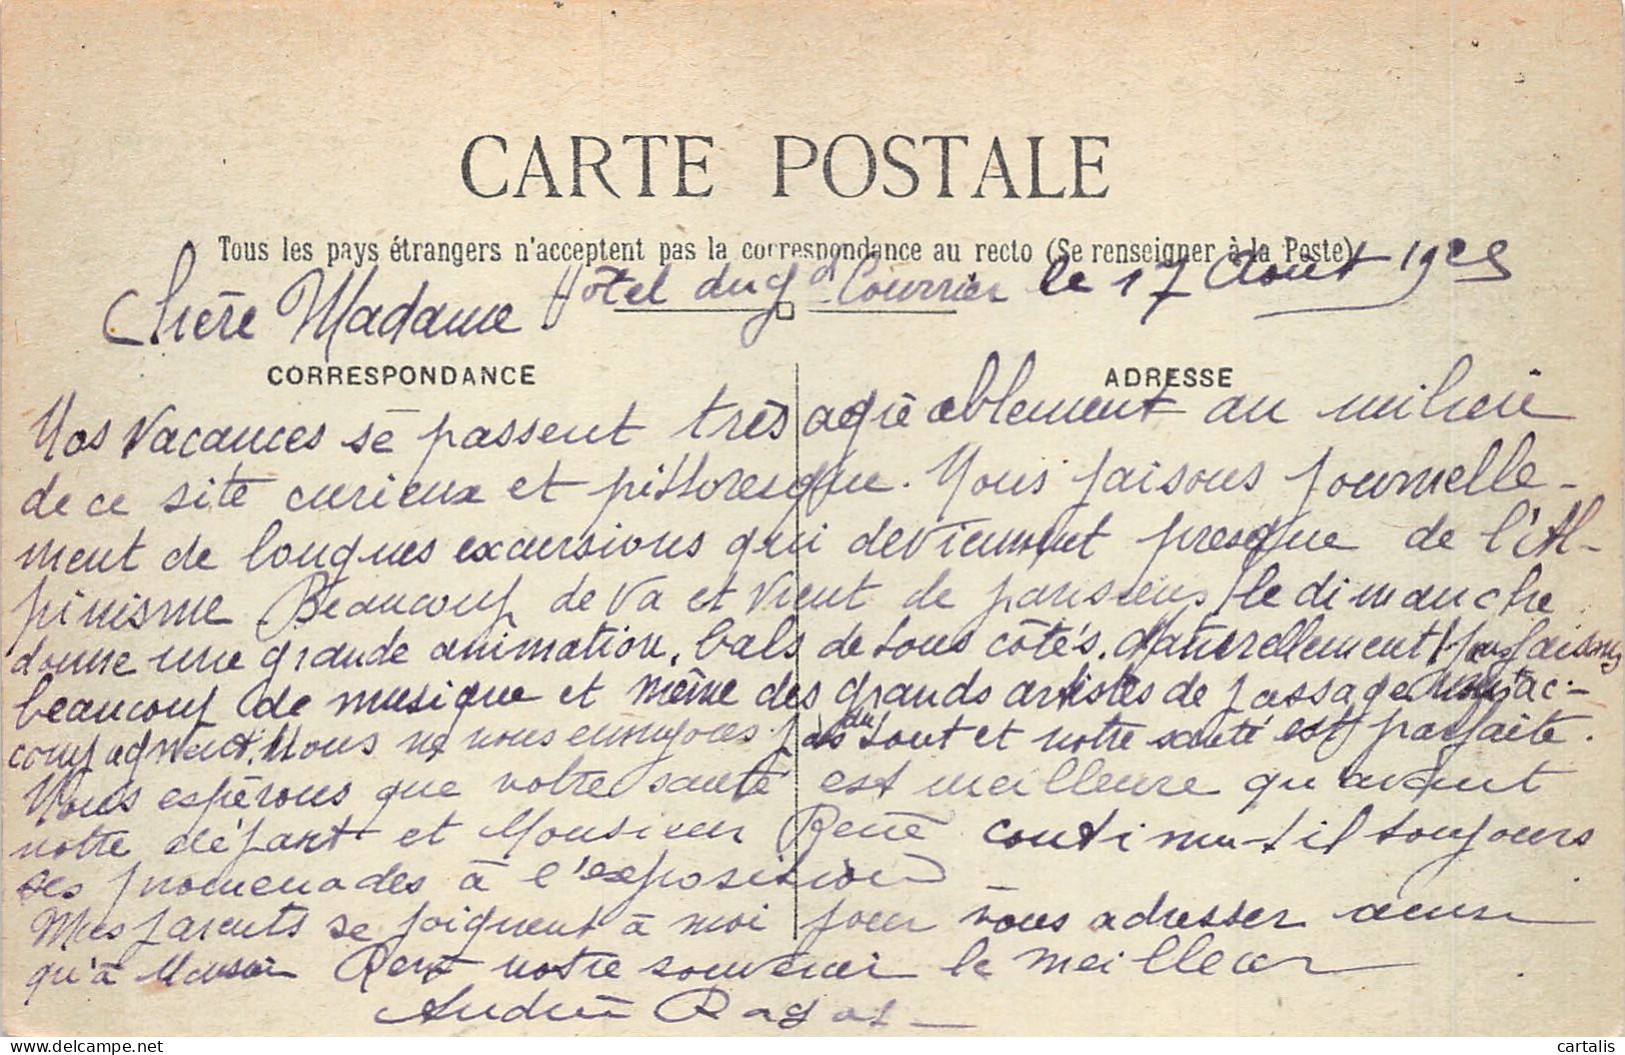 CARTE POSTALE
Tous les pays étrangers n'acceptent pas la correspondance au recto (Se renseigner à la Poste)
Hôtel du gd Courrier le 17 Août 1925
Chère Madame
CORRESPONDANCE
ADRESSE
Nos vacances se passent très agréablement au milieu
de ce site curieux et pittoresque. Nous faisons journelle-
ment de longues excursions qui deviennent presque de l'Al-
pinisme Beaucoup de va et vient de parisiens, le dimanche
donne une grande animation, bals de tous côtés. Naturellement nous faisons
beaucoup de musique et même des grands artistes de passage nous ac-
compagnent. Nous ne nous ennuyons pas du tout et notre santé est parfaite.
Nous espérons que votre santé est meilleure qu'avant
notre départ et Monsieur René continu-t il toujours
ses promenades à l'exposition
Mes parents se joignent à moi pour vous adresser ainsi
qu'à Monsieur René notre souvenir le meilleur
Andrée